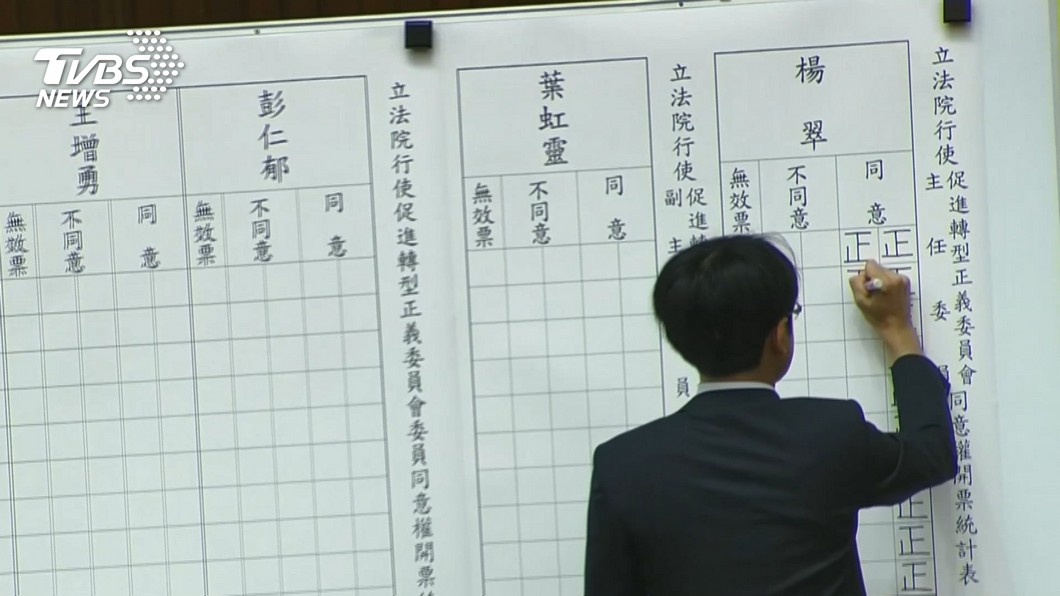 TVBS
NEWS
立法院行使
促進轉型正義委員會
主任委員
同意權開票統計表
楊翠
同意
不同意
無效票
正正
正
正
正
立法院行使
促進轉
副主
員
葉虹靈
同意
不同意
無效票
立法院行使促進轉型正義委員會委員同意權開票
彭仁郁
同意
不同意
無效票
王增勇
同意
不同意
無效票